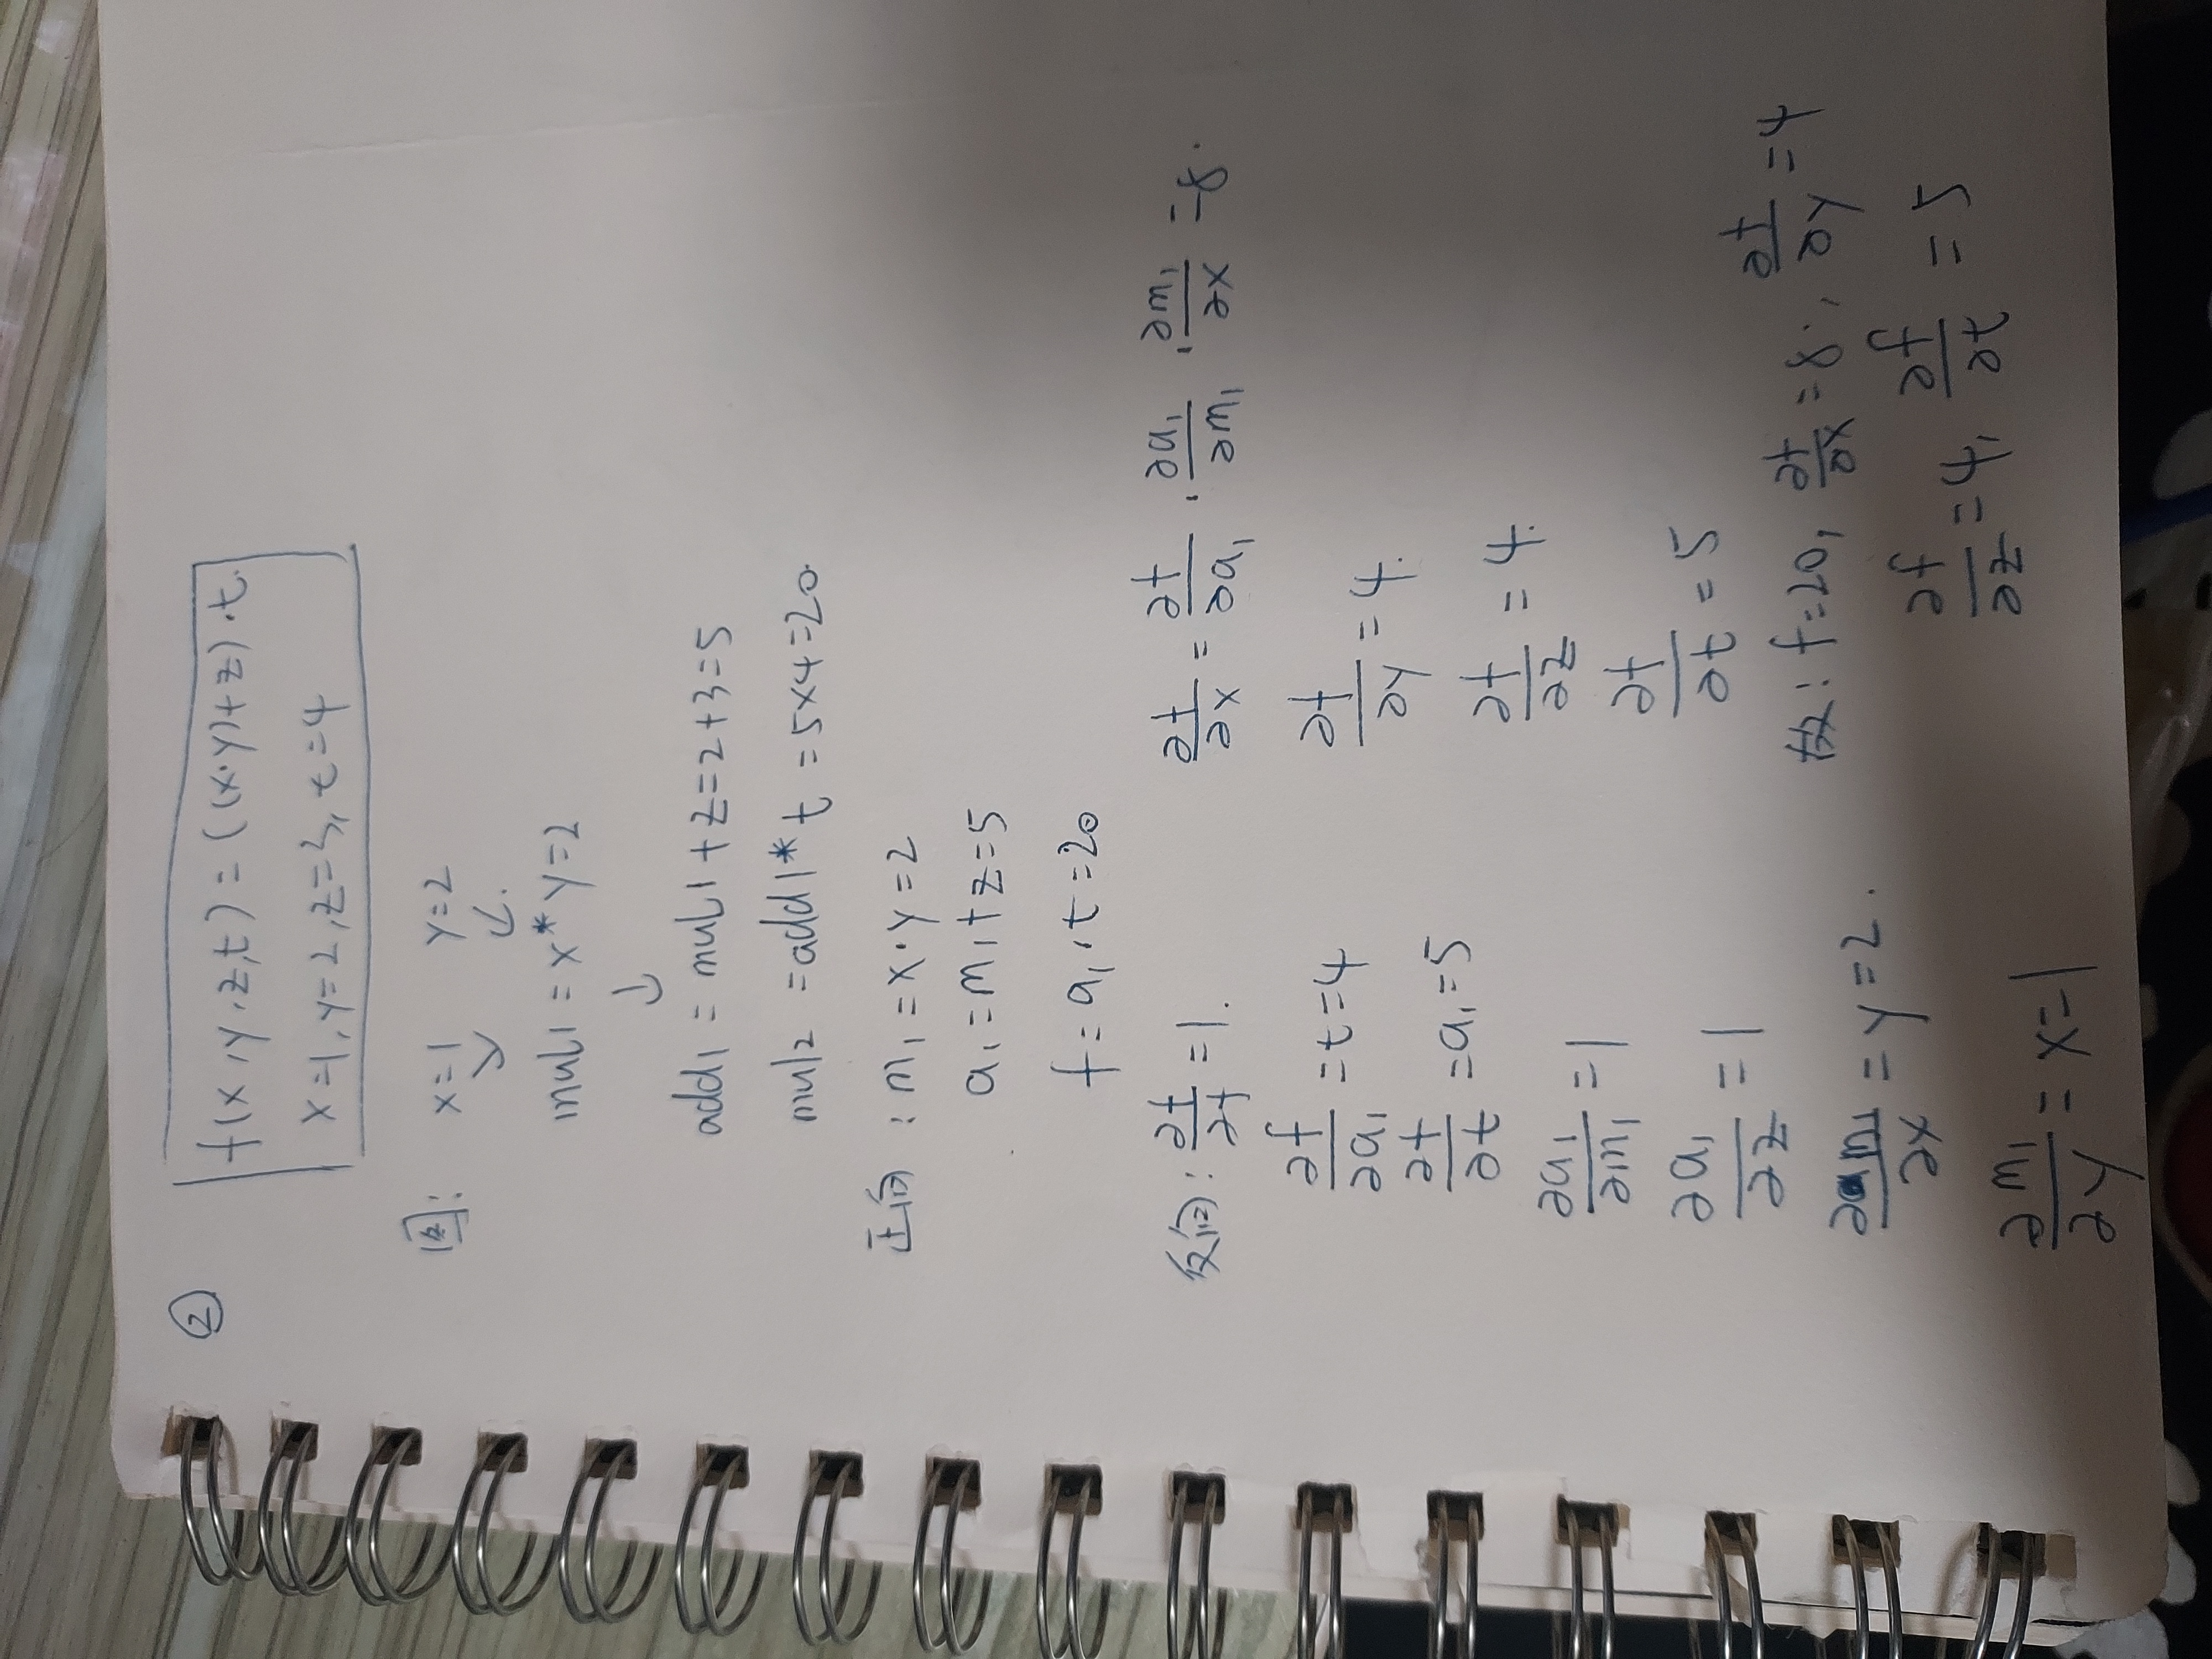 ②
f(x,y,z,t)=((x·y)+z)·t.
x=1,y=2,z=3,t=4
图: x=1 y=2
↘ ↙.
mul1=x*y=2
↓
add1=mul1+z=2+3=5
mul2=add1*t=5×4=20.
正向:m₁=x·y=2
a₁=m₁+z=5
f=a₁·t=20
反向:∂f/∂f=1.
∂f/∂a₁=t=4
∂f/∂t=a₁=5
∂a₁/∂m₁=1
∂a₁/∂z=1
∂m₁/∂x=y=2.
∂m₁/∂y=x=1
∂f/∂x=∂f/∂a₁·∂a₁/∂m₁·∂m₁/∂x=8.
∂f/∂y=4.
∂f/∂z=4.
∂f/∂t=5
故:f=20,∂f/∂x=8,∂f/∂y=4
∂f/∂z=4,∂f/∂t=5